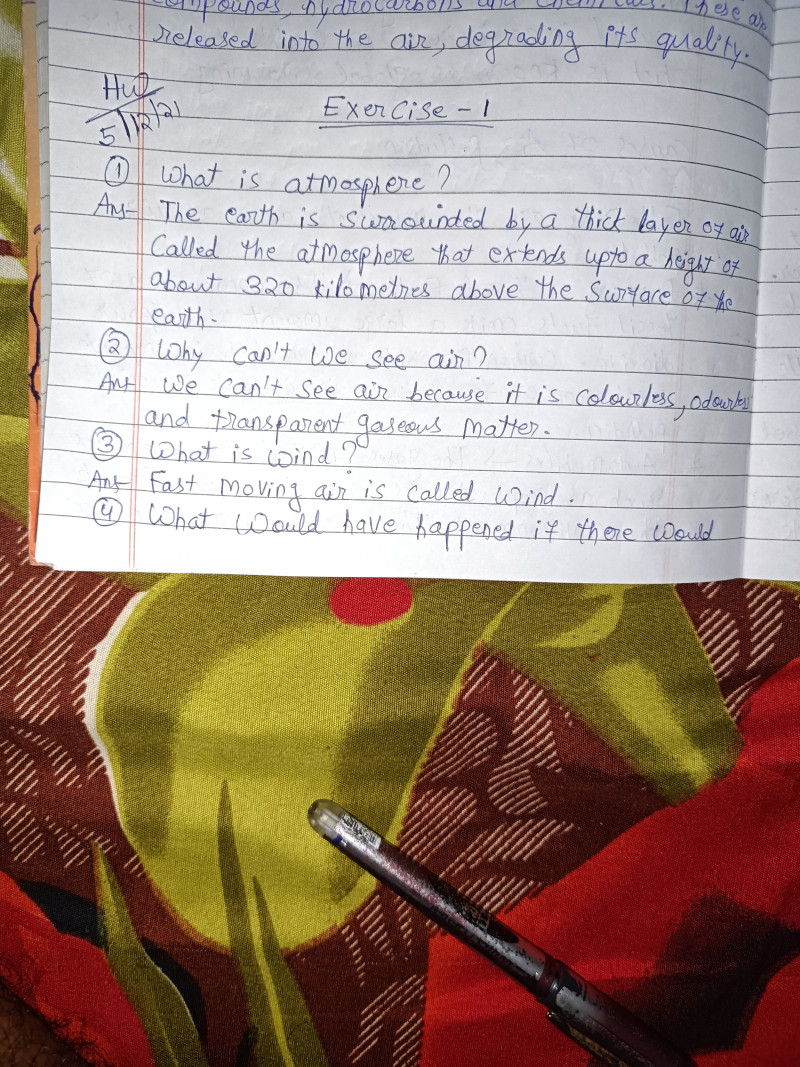 compounds, hydrocarbons and chemicals. These are
released into the air, degrading its quality.
HW
5/12/21
Exercise - 1
① What is atmosphere?
Ans- The earth is surrounded by a thick layer of air
Called the atmosphere that extends upto a height of
about 320 kilometres above the surface of the
earth.
② Why can't we see air?
Ans We can't see air because it is colourless, odourless
and transparent gaseous matter.
③ What is wind?
Ans Fast moving air is called wind.
④ What would have happened if there would